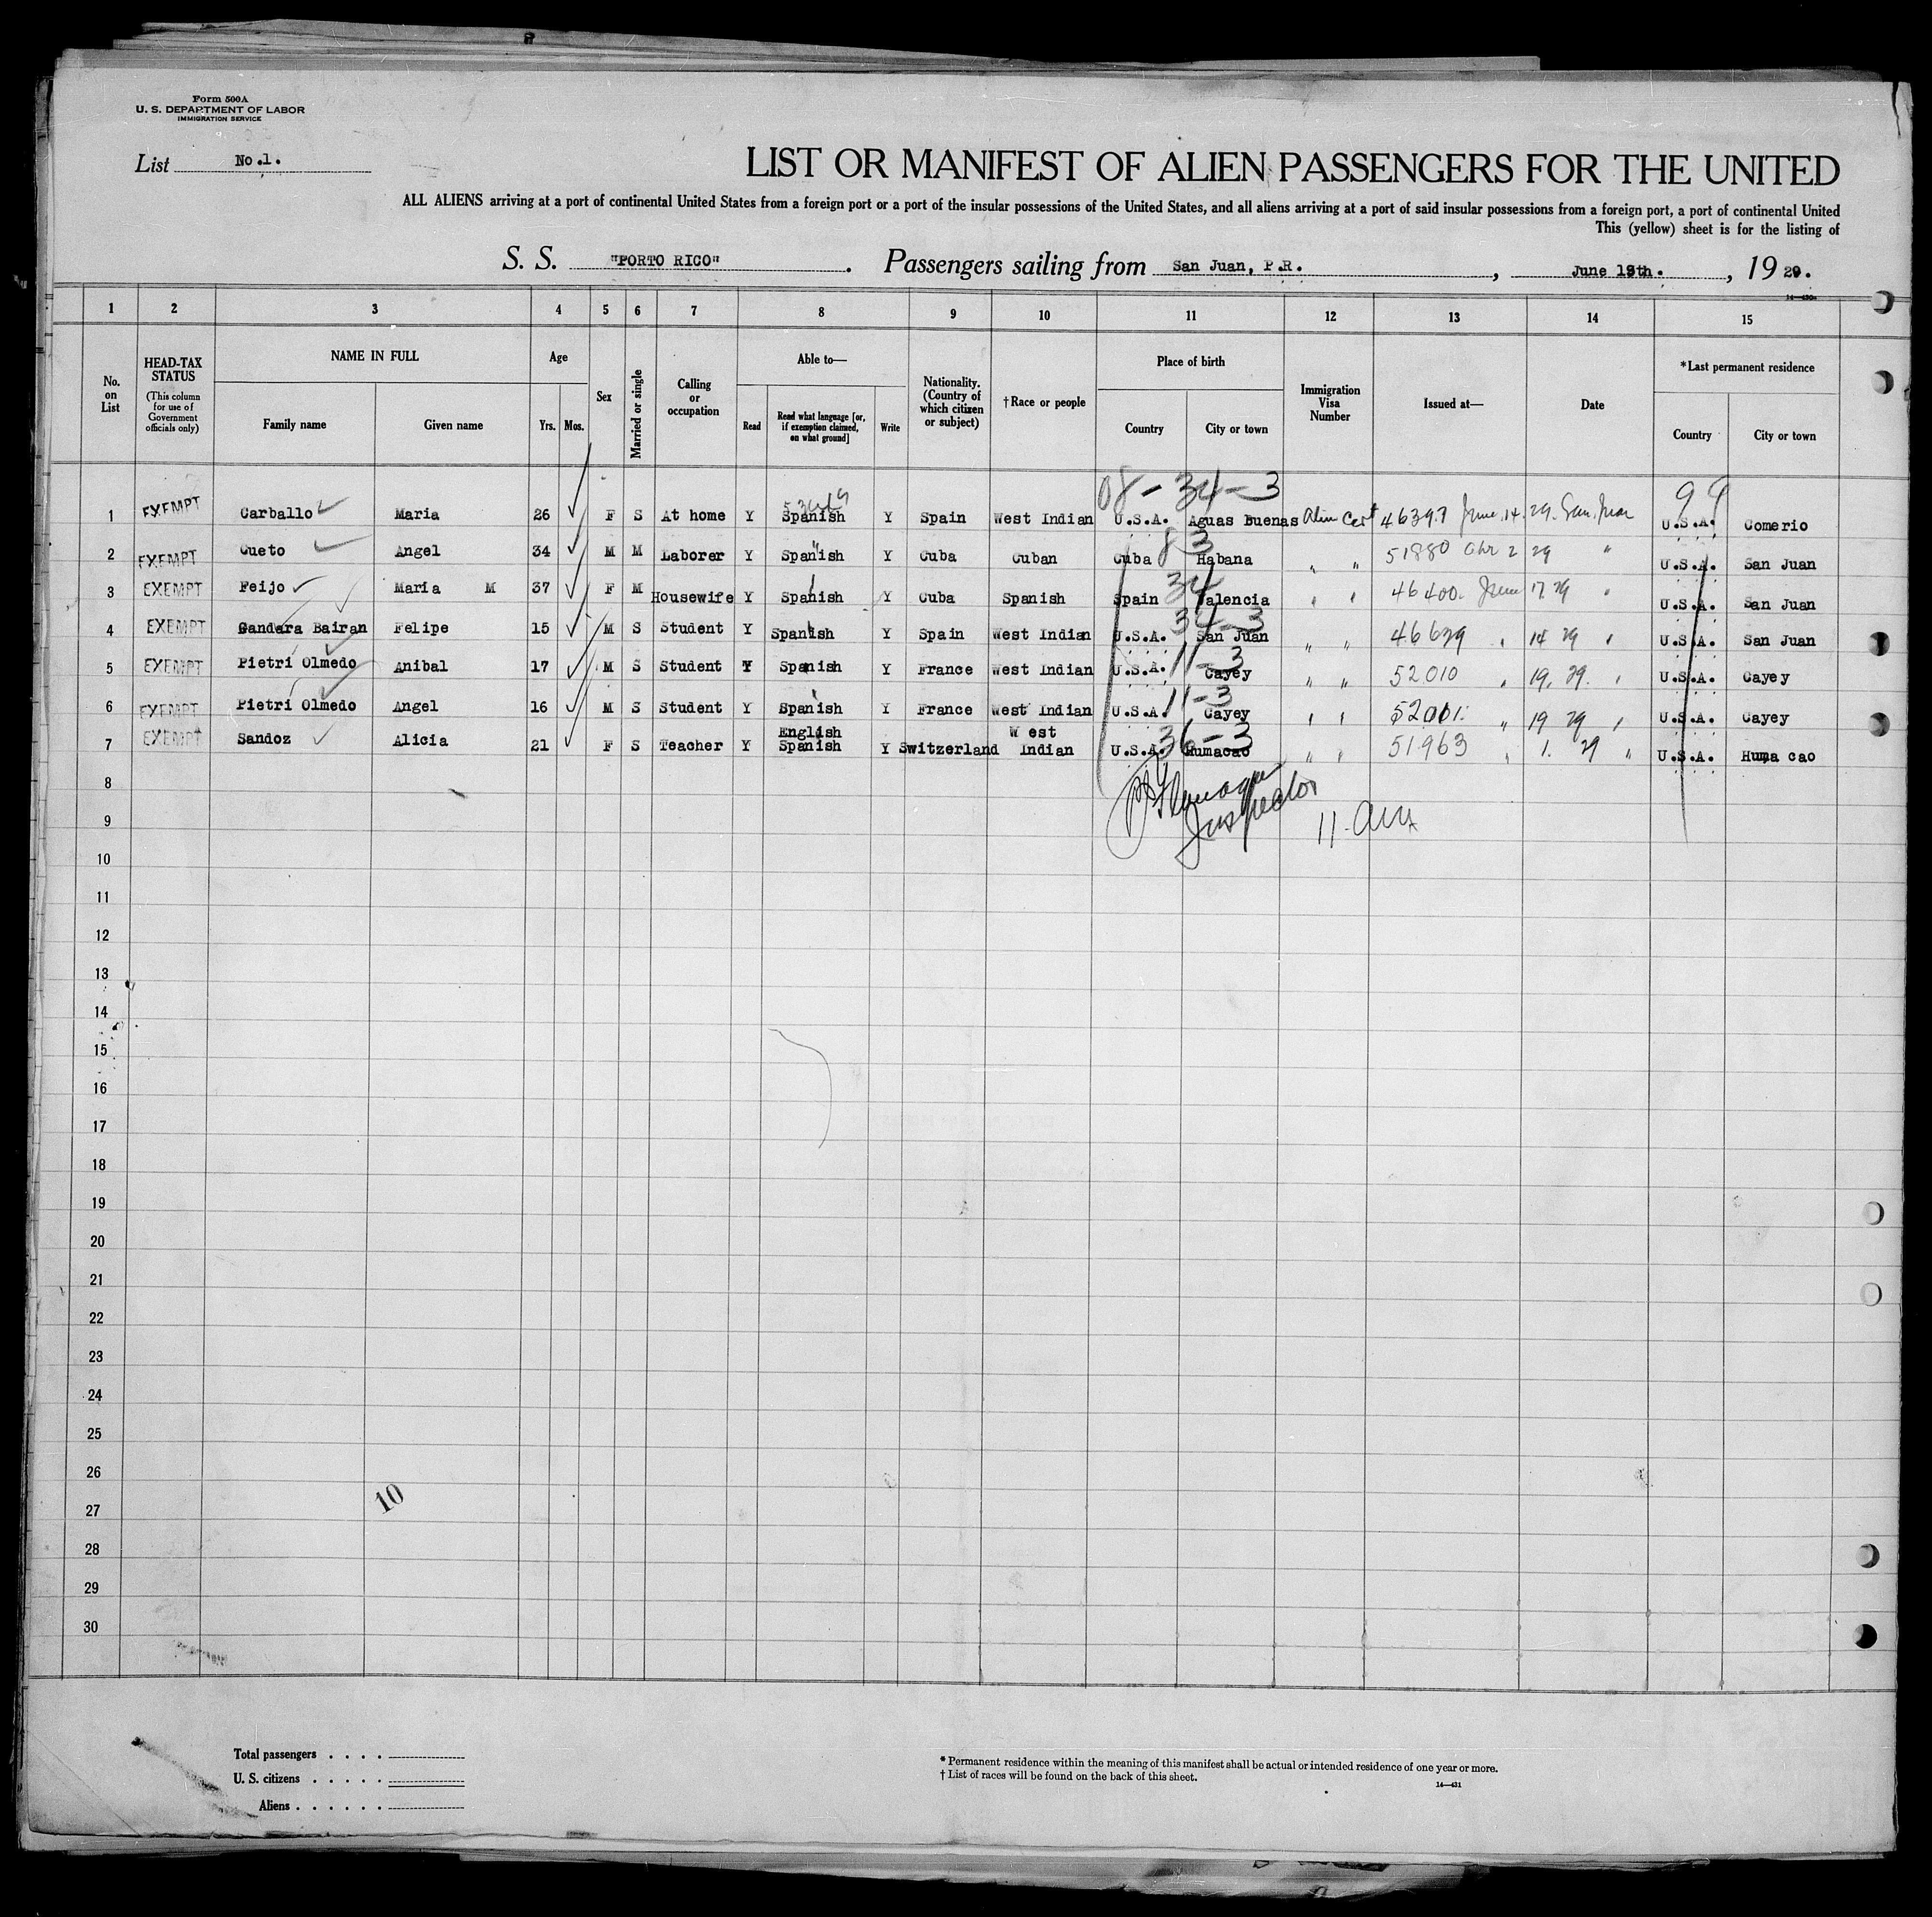 Form 500A
U. S. DEPARTMENT OF LABOR
IMMIGRATION SERVICE
List No.1.
LIST OR MANIFEST OF ALIEN PASSENGERS FOR THE UNITED
ALL ALIENS arriving at a port of continental United States from a foreign port or a port of the insular possessions of the United States, and all aliens arriving at a port of said insular possessions from a foreign port, a port of continental United
This (yellow) sheet is for the listing of
S. S. "PORTO RICO". Passengers sailing from San Juan, P.R. , June 19th. , 19 29.
1 2 3 4 5 6 7 8 9 10 11 12 13 14 15
No. on List
HEAD-TAX STATUS
(This column for use of Government officials only)
NAME IN FULL
Family name Given name
Age
Yrs. Mos.
Sex
Married or single
Calling or occupation
Able to—
Read
Read what language [or, if exemption claimed, on what ground]
Write
Nationality. (Country of which citizen or subject)
†Race or people
Place of birth
Country City or town
Immigration Visa Number
Issued at—
Date
*Last permanent residence
Country City or town
08-34-3 99
1 EXEMPT Carballo Maria 26 F S At home Y Spanish Y Spain West Indian U.S.A. Aguas Buenas Alien Cert 46397 June 14 29. San Juan U.S.A. Comerio
83
2 EXEMPT Cueto Angel 34 M M Laborer Y Spanish Y Cuba Cuban Cuba Habana " " 51880 2 29 " U.S.A. San Juan
34
3 EXEMPT Feijo Maria M 37 F M Housewife Y Spanish Y Cuba Spanish Spain Valencia " " 46400 June 17 29 " U.S.A. San Juan
34-3
4 EXEMPT Gandara Bairan Felipe 15 M S Student Y Spanish Y Spain West Indian U.S.A. San Juan " " 46639 " 14 29 " U.S.A. San Juan
11-3
5 EXEMPT Pietri Olmedo Anibal 17 M S Student Y Spanish Y France West Indian U.S.A. Cayey " " 52010 " 19. 29. " U.S.A. Cayey
11-3
6 EXEMPT Pietri Olmedo Angel 16 M S Student Y Spanish Y France West Indian U.S.A. Cayey " " 52011 " 19 29 " U.S.A. Cayey
36-3
7 EXEMPT Sandoz Alicia 21 F S Teacher Y English Spanish Y Switzerland West Indian U.S.A. Humacao " " 51963 " 1. 29 " U.S.A. Humacao
8
Inspector
9
10
11
12
13
14
15
16
17
18
19
20
21
22
23
24
25
26
10
27
28
29
30
Total passengers . . . .
U. S. citizens . . . . .
Aliens . . . . . .
* Permanent residence within the meaning of this manifest shall be actual or intended residence of one year or more.
† List of races will be found on the back of this sheet.
14—431